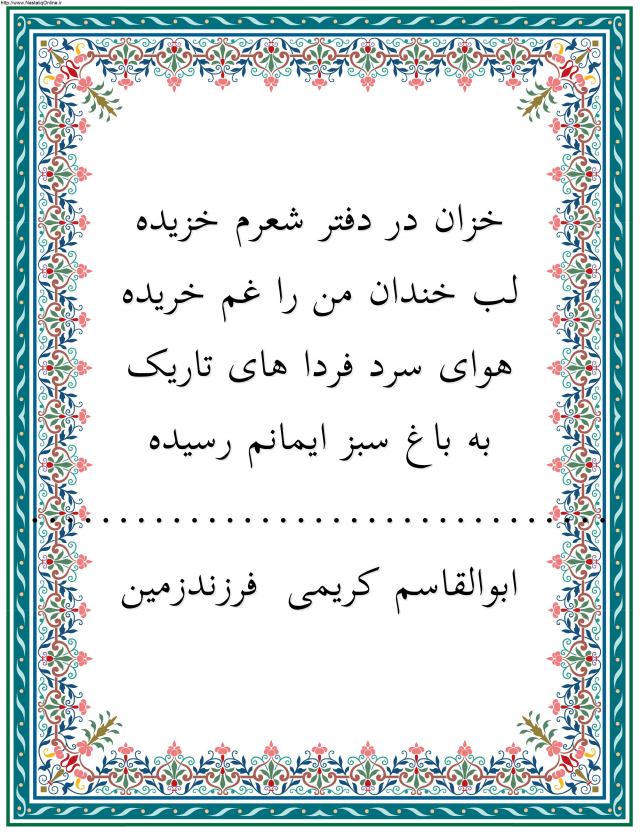 http://www.NastaliqOnline.ir
خزان در دفتر شعرم خزیده
لب خندان من را غم خریده
هوای سرد فردا های تاریک
به باغ سبز ایمانم رسیده
................................
ابوالقاسم کریمی  فرزندزمین